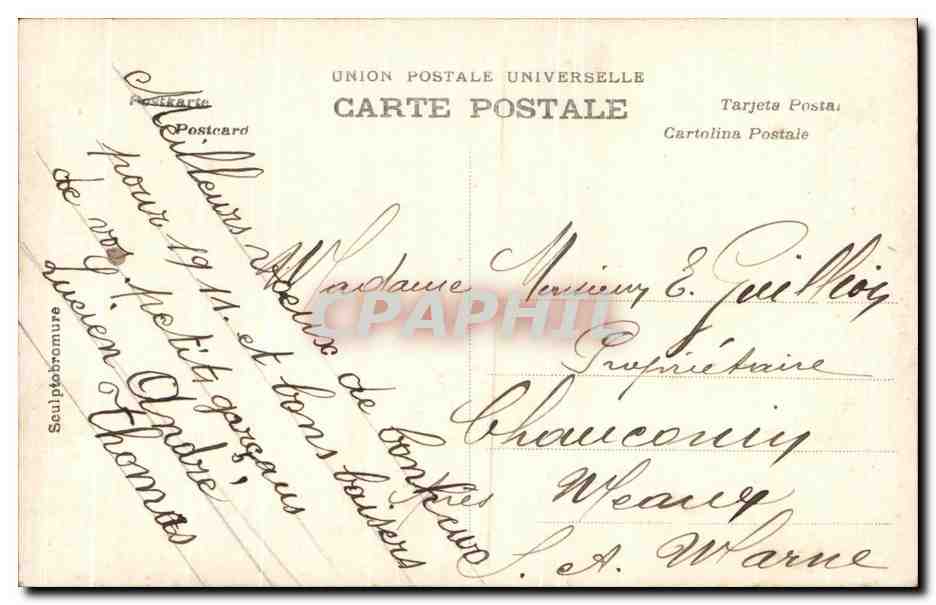 UNION POSTALE UNIVERSELLE
CARTE POSTALE
Postkarte
Postcard
Tarjeta Postal
Cartolina Postale
Sculptobromure
Meilleurs vœux de bonheur
pour 1911. et bons baisers
de vos petits garçons
Lucien André
Thomas
Madame Monsieur E. Guilliou
Propriétaire
Chauconin
près Meaux
S. A. Marne
CPAPHIL